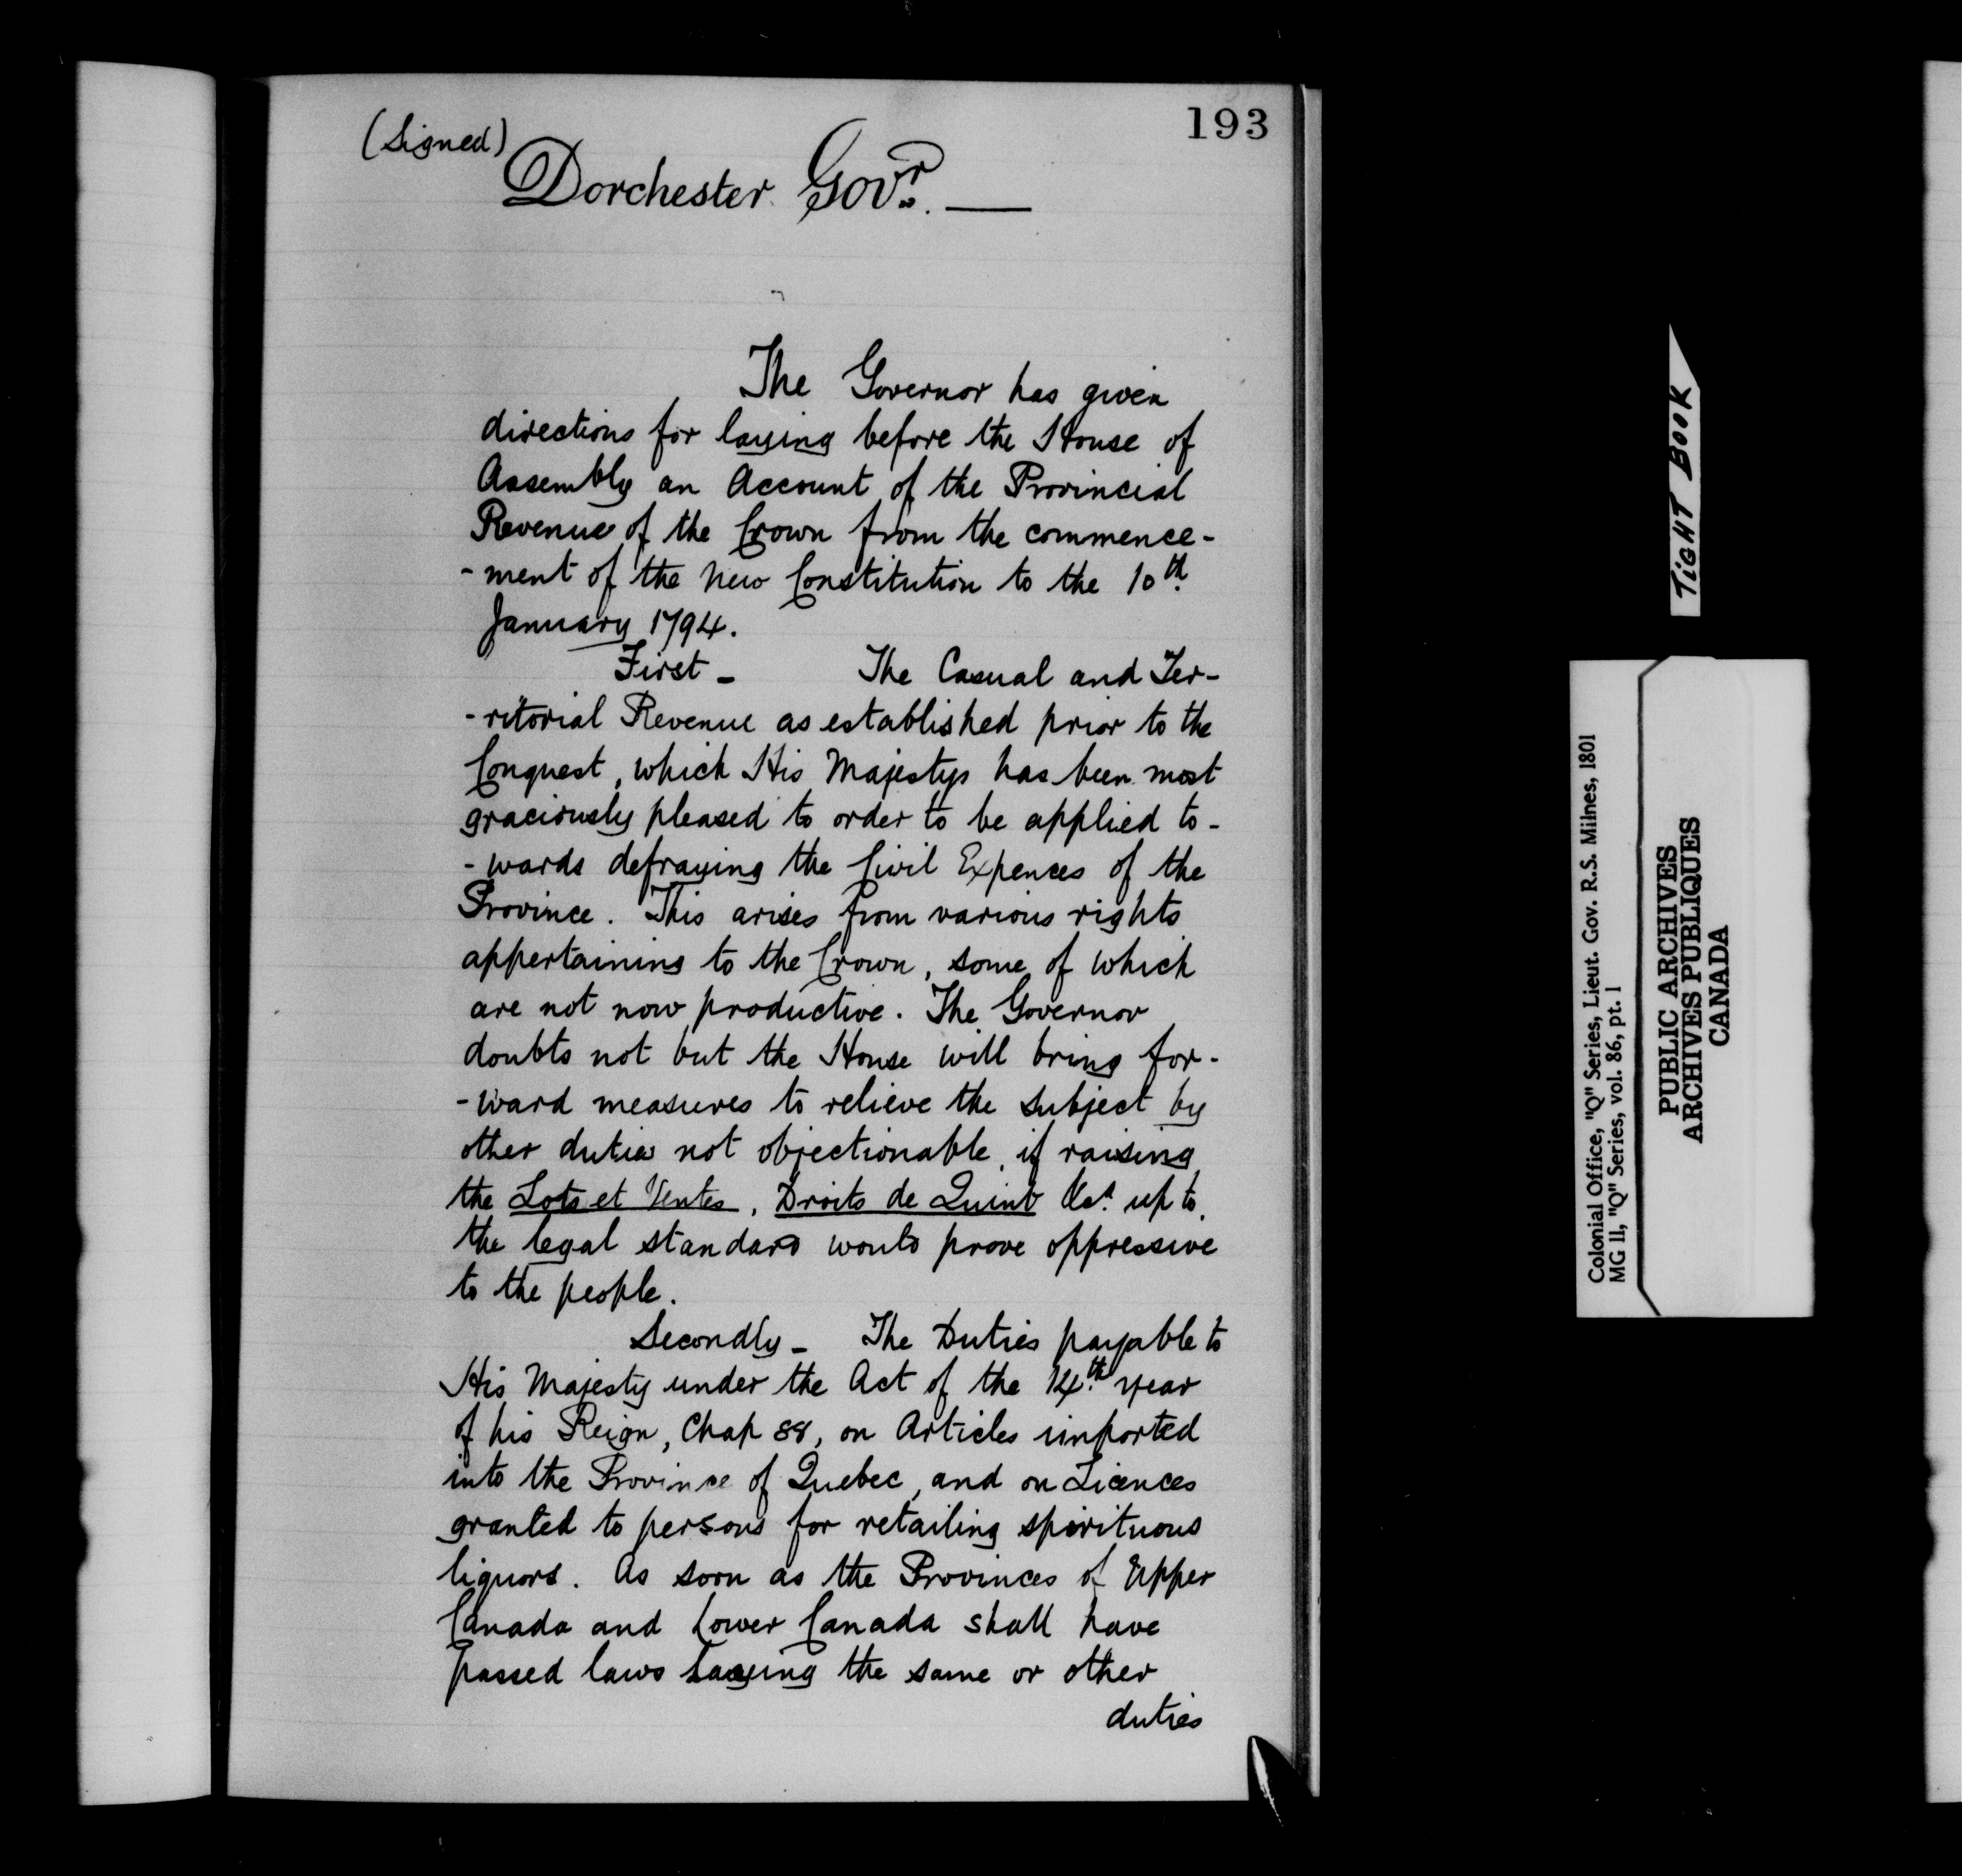 193
(Signed)
Dorchester Govr. —
The Governor has given
directions for laying before the House of
Assembly an Account of the Provincial
Revenue of the Crown from the commence-
-ment of the New Constitution to the 10th
January 1794.
First – The Casual and Ter-
-ritorial Revenue as established prior to the
Conquest, which His Majesty has been most
graciously pleased to order to be applied to-
-wards defraying the Civil Expences of the
Province. This arises from various rights
appertaining to the Crown, some of which
are not now productive. The Governor
doubts not but the House will bring for-
-ward measures to relieve the subject by
other duties not objectionable, if raising
the Lots et Ventes, Droits de Quint &ca. up to
the legal standard would prove oppressive
to the people.
Secondly – The Duties payable to
His Majesty under the Act of the 14th year
of his Reign, Chap 88, on Articles imported
into the Province of Quebec, and on Licences
granted to persons for retailing spirituous
liquors. As soon as the Provinces of Upper
Canada and Lower Canada shall have
passed laws laying the same or other
duties
TIGHT BOOK
Colonial Office, "Q" Series, Lieut. Gov. R.S. Milnes, 1801
MG 11, "Q" Series, vol. 86, pt. 1
PUBLIC ARCHIVES
ARCHIVES PUBLIQUES
CANADA